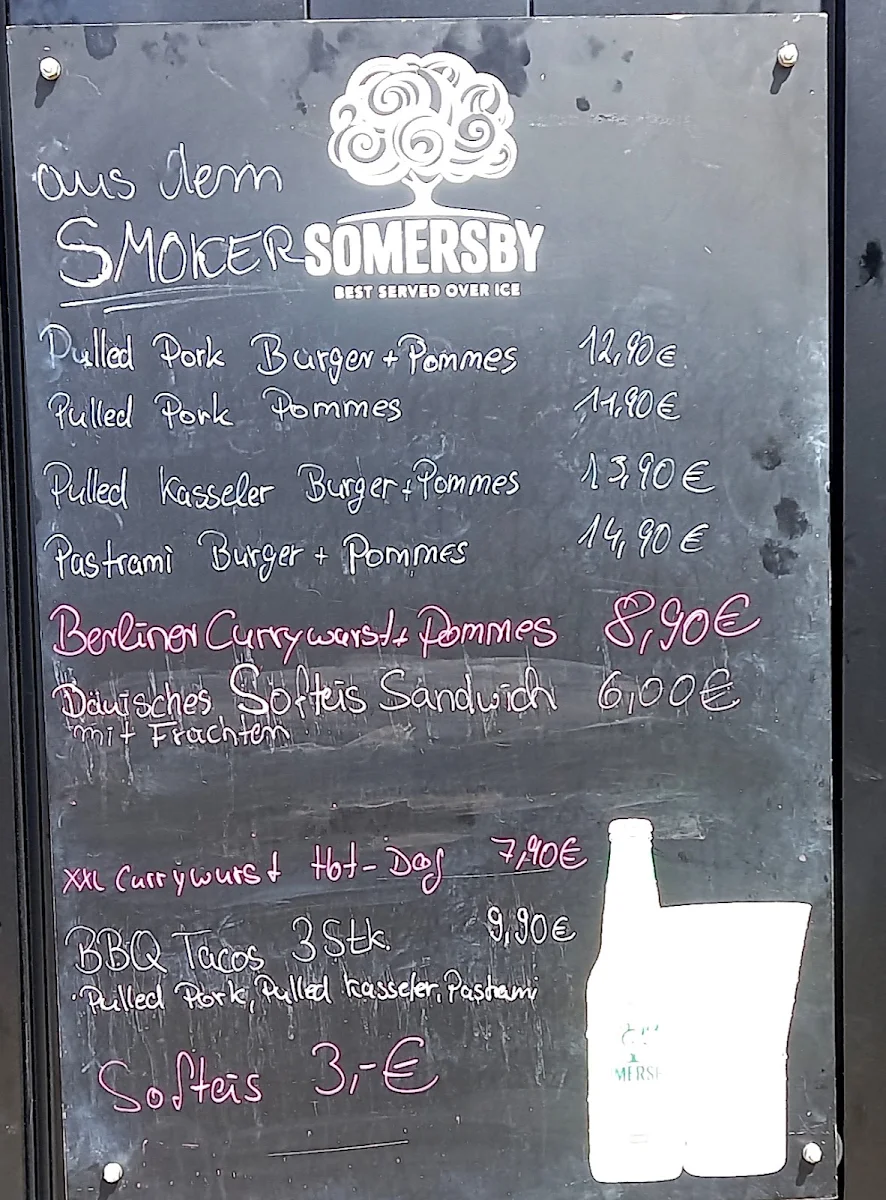 aus dem
SMOKER
SOMERSBY
BEST SERVED OVER ICE
Pulled Pork Burger + Pommes 12,90€
Pulled Pork Pommes 11,90€
Pulled Kasseler Burger + Pommes 13,90€
Pastrami Burger + Pommes 14,90€
Berliner Currywurst + Pommes 8,90€
Dänisches Softeis Sandwich 6,00€
mit Früchten
XXL Currywurst Hot-Dog 7,90€
BBQ Tacos 3 Stk. 9,90€
Pulled Pork, Pulled Kasseler, Pastrami
Softeis 3,-€